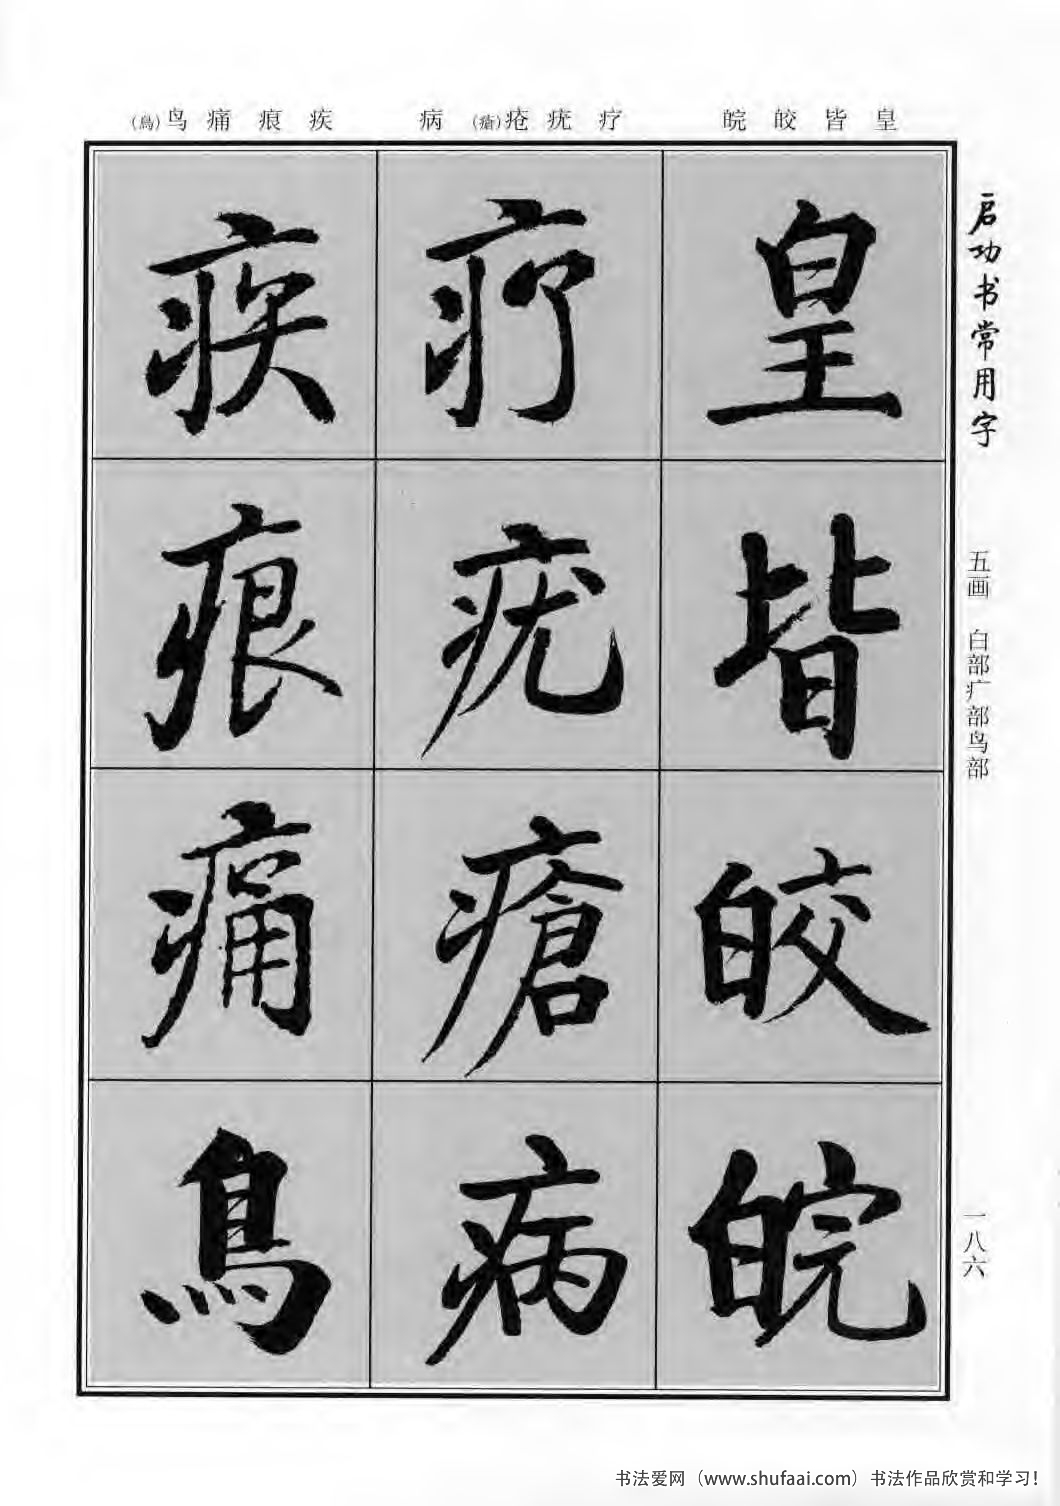 皇皆皎皖
疗疣疮(瘡)病
疾痕痛鸟(鳥)
启功书常用字
五画 白部疒部鸟部
一八六
皇
皆
皎
皖
疗
疣
瘡
病
疾
痕
痛
鳥
书法爱网（www.shufaai.com）书法作品欣赏和学习！